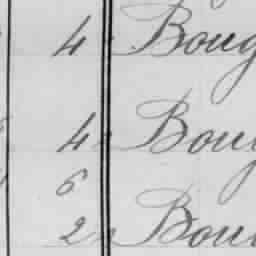 4 Boug
4 Bou
6
2 Bou